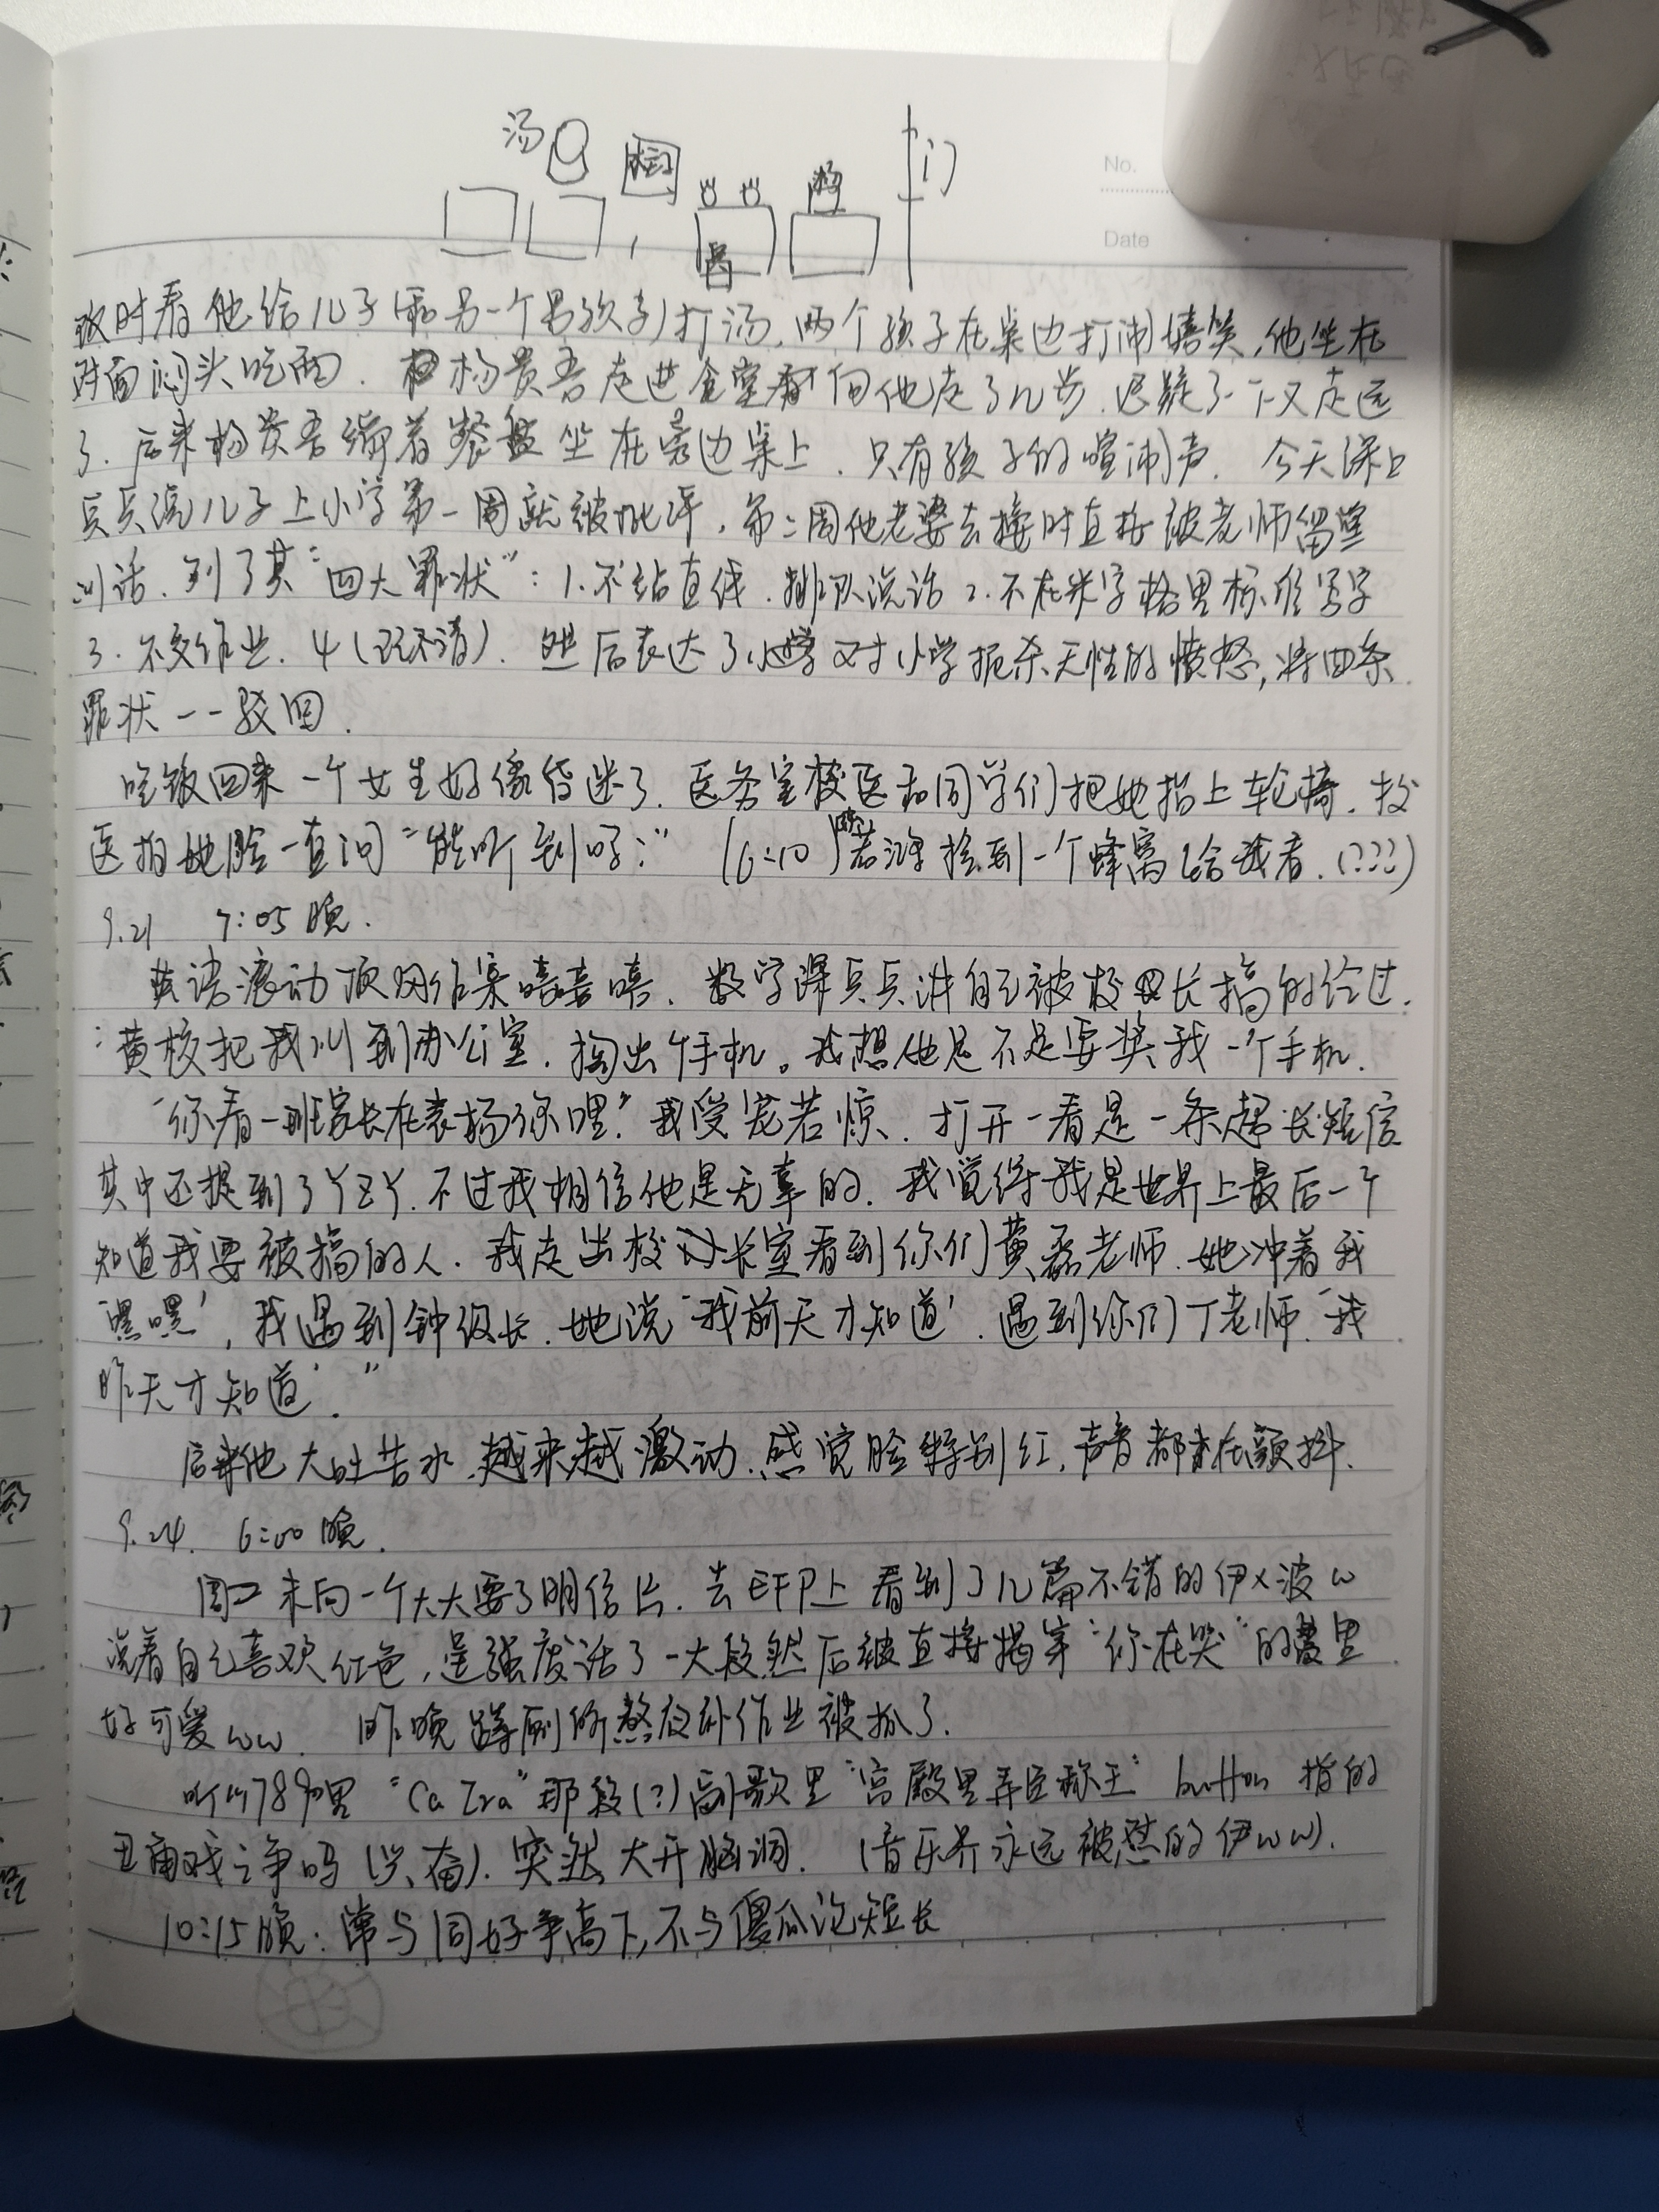 汤
门
No.
Date
饭时看他给儿子(和另一个男孩子)打汤,两个孩子在桌边打闹嬉笑,他坐在
对面闷头吃面. 杨贵吾走进食堂 向他走了几步.迟疑了一下又走远
了.后来杨贵吾端着餐盘坐在旁边桌上.只有孩子的喧闹声. 今天课上
兵兵说儿子上小学第一周就被批评,第二周他老婆去接时直接被老师留堂
训话.列了其“四大罪状”:1.不站直线.排队说话 2.不在米字格里标准写字
3.不交作业.4(记不清).然后表达了 对小学扼杀天性的愤怒,将四条
罪状一一驳回.
吃饭回来一个女生好像昏迷了.医务室校医和同学们把她抬上轮椅.校
医拍她脸一直问“能听到吗?” (6:10) 若泽捡到一个蜂窝给我看.(???)
9.21 7:05晚.
英语滚动 作案嘻嘻嘻.数学课兵兵讲自己被校长搞的经过.
“黄校把我叫到办公室.掏出个手机。我想他是不是要奖我一个手机.
“你看一班家长在表扬你哩.”我受宠若惊.打开一看是一条超长短信
其中还提到了YZY.不过我相信他是无辜的.我觉得我是世界上最后一个
知道我要被搞的人.我走出校长室看到你们黄磊老师.她冲着我
‘嘿嘿’,我遇到钟级长.她说‘我前天才知道’.遇到你们丁老师.‘我
昨天才知道’.”
后来他大吐苦水.越来越激动.感觉脸特别红,声音都在颤抖.
9.24. 6:00晚.
周二未向一个大大要了明信片.去EFP上看到了几篇不错的伊x波w
说着自己喜欢红色,逞强废话了一大段然后被直接揭穿“你在哭”的 里
好可爱ww. 昨晚蹲厕所熬夜补作业被抓了.
听《789》里“Ca Ira”那段(?)副歌里“宫殿里弄臣称王” button 指的
丑角戏之争吗(兴奋).突然大开脑洞. (音乐界永远被怼的伊ww).
10:15晚:常与同好争高下,不与傻瓜论短长